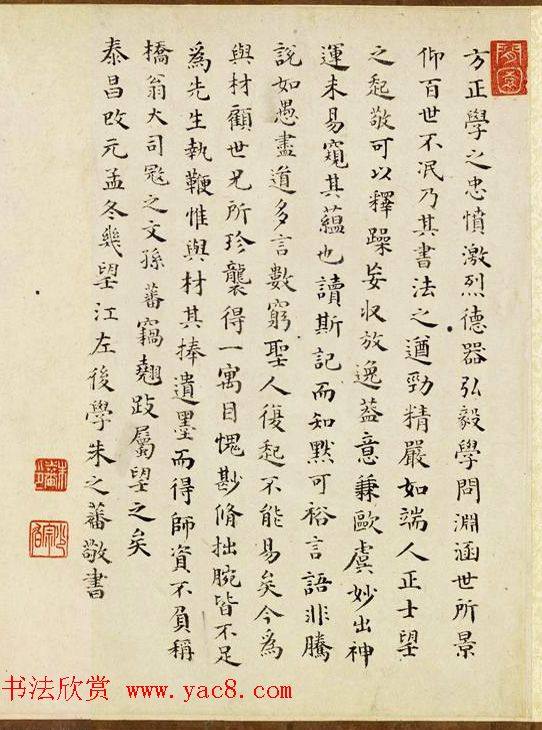 方正學之忠憤激烈德器弘毅學問淵涵世所景
仰百世不泯乃其書法之遒勁精嚴如端人正士望
之起敬可以釋躁妄收放逸葢意兼歐虞妙出神
運未易窺其蘊也讀斯記而知默可裕言語非騰
說如愚盡道多言數窮聖人復起不能易矣今為
與材顧世兄所珍襲得一寓目愧尠脩拙腕皆不足
為先生執鞭惟與材其捧遺墨而得師資不負稱
橋翁大司寇之文孫蕃竊翹跂屬望之矣
泰昌改元孟冬幾望江左後學朱之蕃敬書
书法欣赏 www.yac8.com